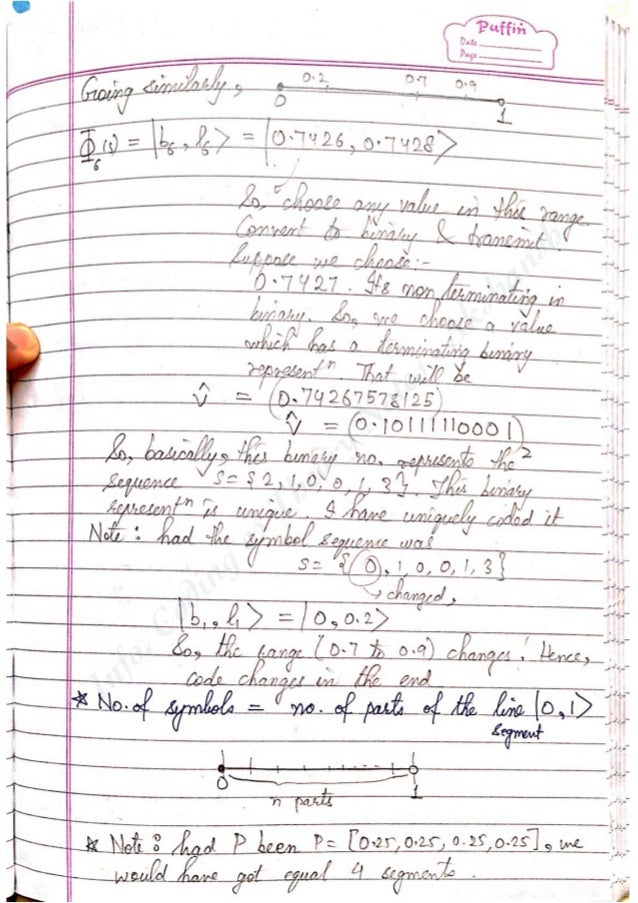 Puffin
Date
Page
Going similarly,
0.2 0.7 0.9
0 1
Φ₆(s) = |b₆, l₆> = |0.7426, 0.7428>
So, choose any value in this range
Convert to binary & transmit.
Suppose we choose:-
0.7427. It's non terminating in
binary. So, we choose a value
which has a terminating binary
representⁿ. That will be
v̂ = (0.74267578125)
v̂ = (0.10111110001)₂
So, basically, this binary no. represents the
sequence S = {2, 1, 0, 0, 1, 3}. This binary
representⁿ is unique. I have uniquely coded it
Note: had the symbol sequence was
S = {0, 1, 0, 0, 1, 3}
↳ changed,
|b₁, l₁> = |0, 0.2>
So, the range (0.7 to 0.9) changes! Hence,
code changes in the end
* No. of symbols = no. of parts of the line |0, 1>
segment
0 1
n parts
* Note: had P been P = [0.25, 0.25, 0.25, 0.25], we
would have got equal 4 segments.